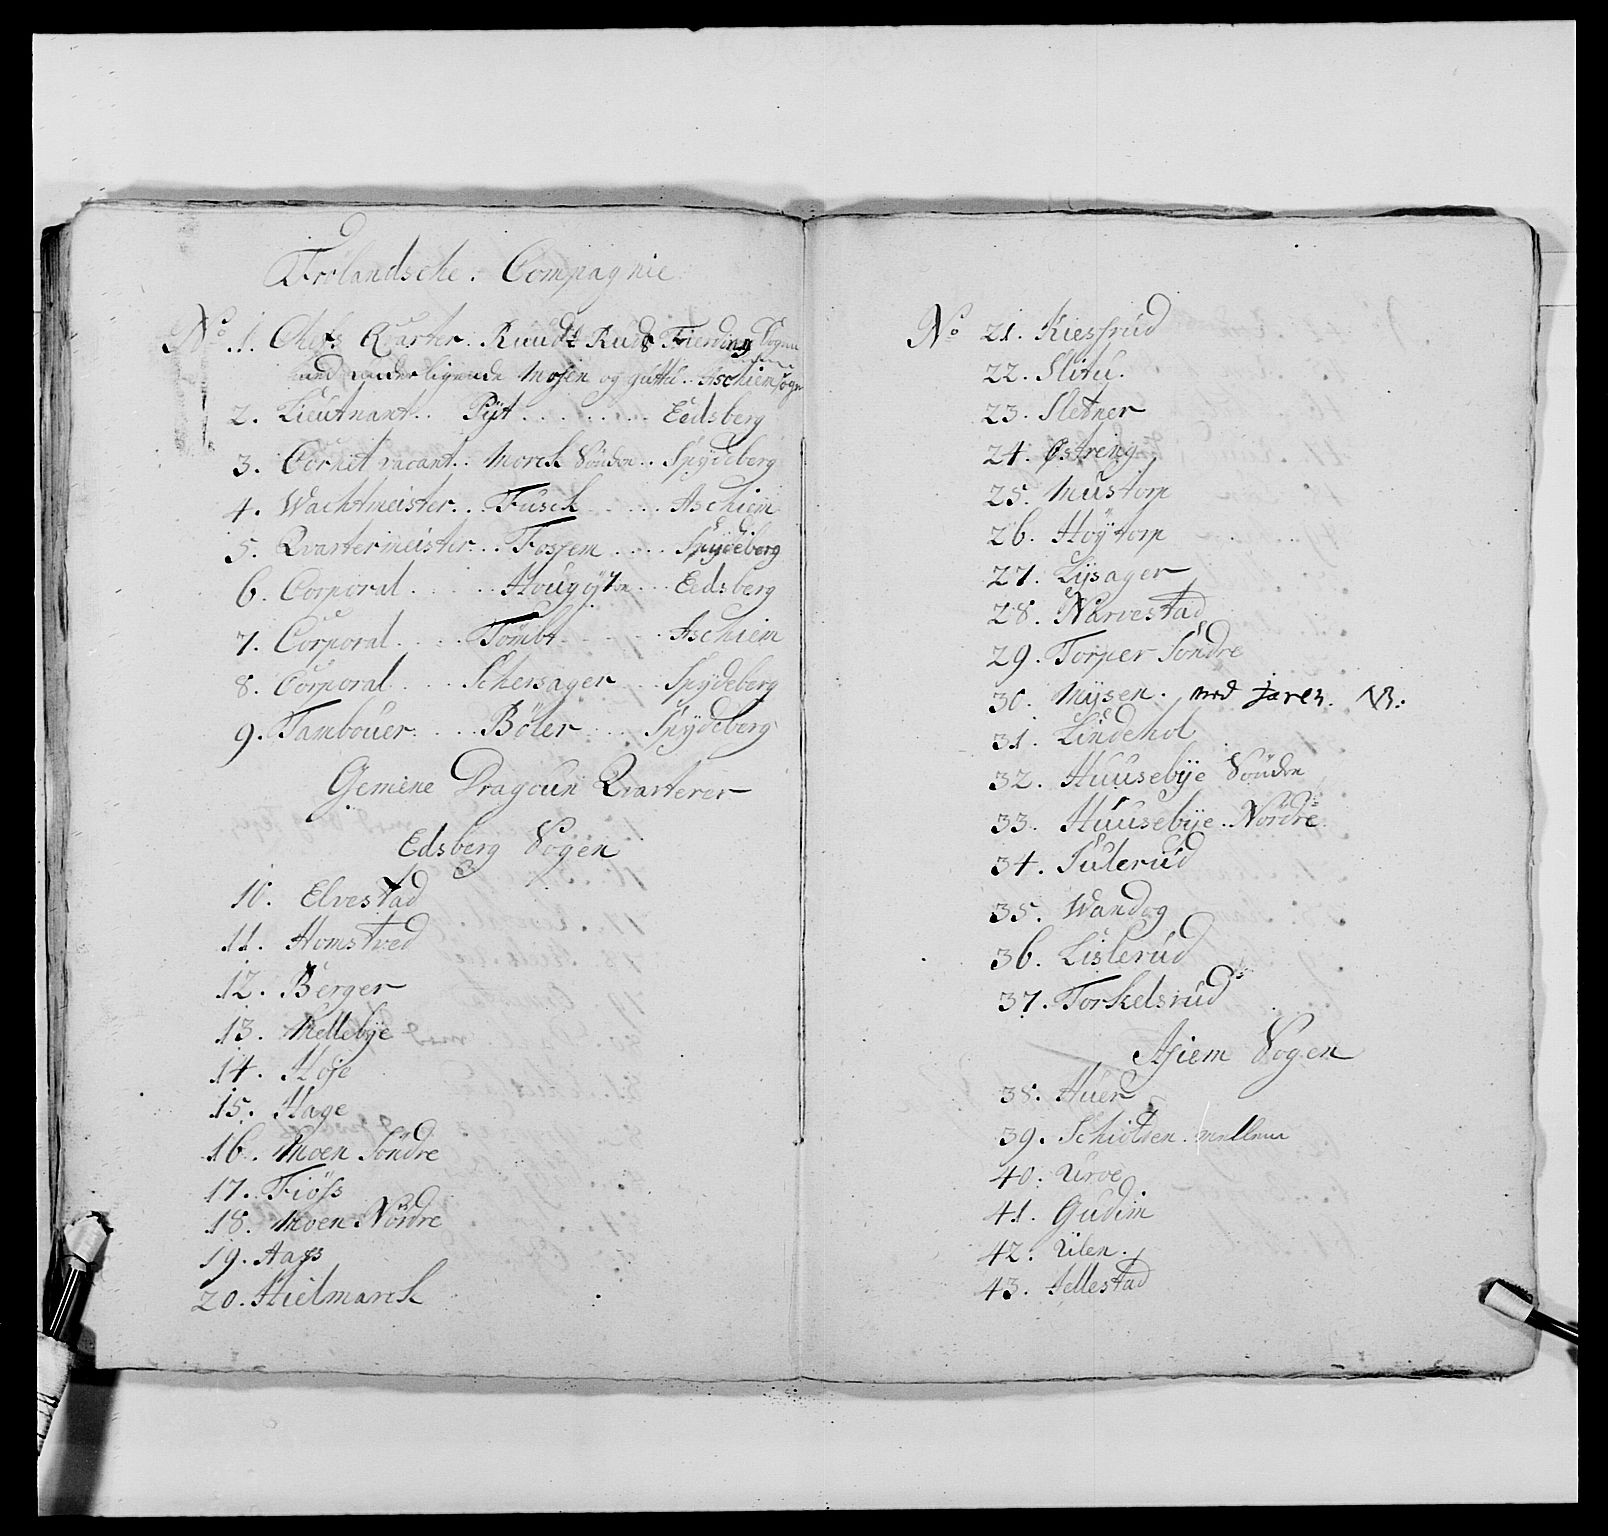 Frölandsche. Compagnie
No 1. Chefs Qvarter. Ruud Fierding Sogen
med underliggende Mosen og Aschiem Sogn
2. Lieutnant.. Pÿt ........ Eedsberg
3. Cornet vacant.. Morck Sönden.. Spÿdeberg
4. Wachtmeister... Fusck ..... Aschiem
5. Qvartermeister... Fossem ..... Spÿdeberg
6. Corporal ...... ... Eedsberg
7. Corporal ..... Tömbt ...... Aschiem
8. Corporal .... Schersager ... Spÿdeberg
9. Tambouer .... Böler .... Spÿdeberg
Gemene Dragoun Qvarterer
Edsberg Sogen
10. Elvestad
11. Homstved
12. Berger
13. Mellebÿe
14. Hofe
15. Hage
16. Moen Söndre
17. Fiöss
18. Moen Nördre
19. Aass
20. Hielmarck
No 21. Kiessrud
22. Slitu.
23. Sletner
24. Østreng
25. Mustorp
26. Höÿtorp
27. Lÿsager
28. Narvestad
29. Torper Söndre
30. Mÿsen. med Jaren. NB.
31. Lindehol
32. Huusebÿe Sönden
33. Huusebÿe. Nördre
34. Sulerud
35. Wandog
36. Lislerud
37. Torkelsrud
Asiem Sogen
38. Huer
39. Schiolsen. mellem
40. Uroe
41. Gudim
42. Ulen.
43. Hellestad